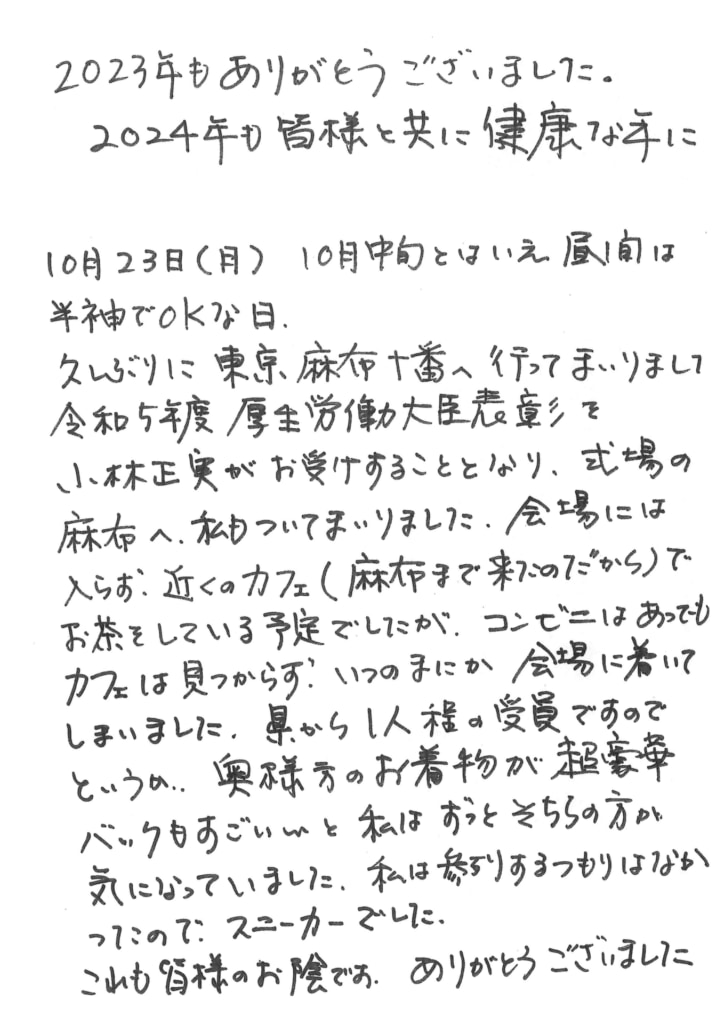 2023年もありがとうございました。
2024年も皆様と共に健康な年に
10月23日(月) 10月中旬とはいえ 昼間は
半袖でOKな日.
久しぶりに 東京 麻布十番へ 行ってまいりまして
令和5年度 厚生労働大臣表彰を
小林正実がお受けすることとなり、式場の
麻布へ、私もついてまいりました. 会場には
入らず. 近くのカフェ(麻布まで来たのだから)で
お茶をしている予定でしたが、コンビニはあっても
カフェは見つからず. いつのまにか 会場に着いて
しまいました. 県から1人程の受員ですので
というか.. 奥様方のお着物が超豪華
バックもすごいいと私はずっとそちらの方が
気になっていました. 私は参列するつもりはなか
ったので. スニーカーでした.
これも皆様のお陰です. ありがとうございました